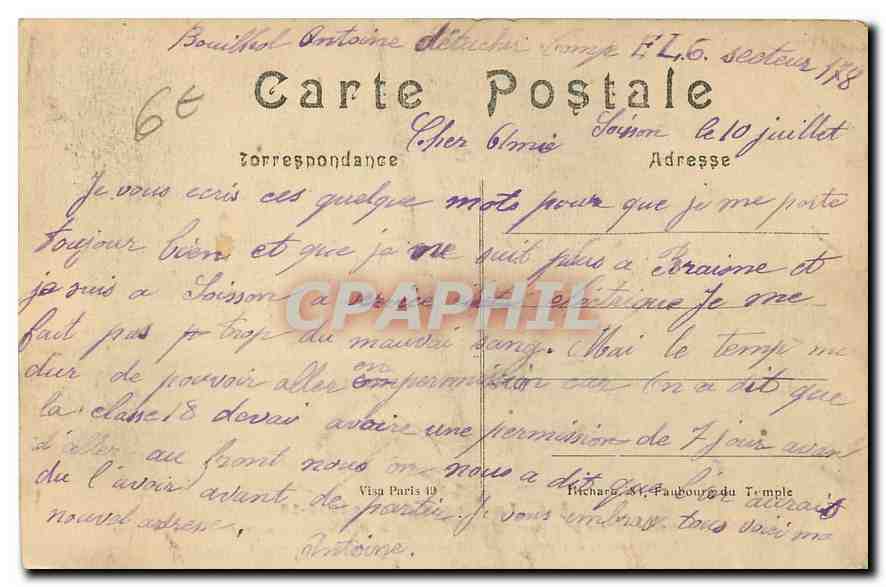 Bouilhol Antoine détacher Camp E L 6. secteur 178
6t
Carte Postale
Cher Amie Soisson le 10 juillet
Correspondance Adresse
Je vous ecris ces quelque mots pour que je me porte
toujour bien et que je ne suit plus a Braisne et
je suis a Soisson a service electrique Je me
fait pas trop du mauvai sang. Mai le temp me
dur de pouvoir aller en permission car on a dit que
la classe 18 devai avoire une permission de 7 jour avant
d'aller au front nous on nous a dit que l'on aurait
Visa Paris 19 Richard, 84, Faubourg du Temple
du l'avoir avant de partir. Je vous embrasse tous voici ma
nouvel adrese.
Antoine.
CPAPHIL